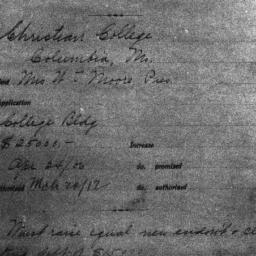 Christian College
Columbia, Mo.
Mrs W T Moore Pres
Application
College Bldg
$25000.- Increase
Apr 24/06 do. promised
Mch 20/12 do. authorised
Must raise equal new endowt &